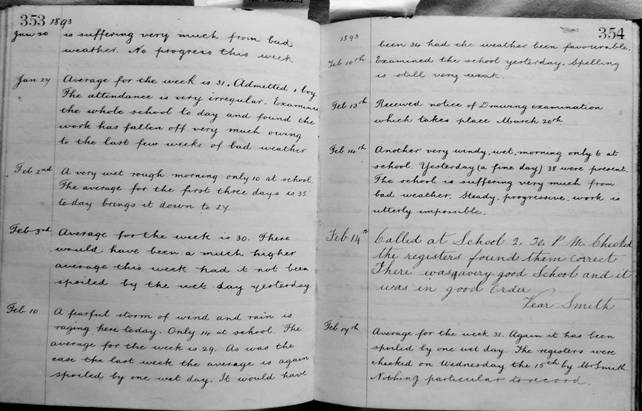 353 1893
Jan 20 is suffering very much from bad
weather. No progress this week
Jan 27 Average for the week is 31. Admitted 1 boy.
The attendance is very irregular. Examined
the whole school to day and found the
work has fallen off very much owing
to the last few weeks of bad weather
Feb 2nd A very wet rough morning only 10 at school
The average for the first three days is 35
to day brings it down to 27.
Feb 3rd Average for the week is 30. These
would have been a much higher
average this week had it not been
spoiled by the wet day yesterday
Feb 10 A fearful storm of wind and rain is
raging here today. Only 14 at school. The
average for the week is 29. As was the
case the last week the average is again
spoiled by one wet day. It would have
354
1893 been 34 had the weather been favourable.
Feb 10th Examined the school yesterday. Spelling
is still very weak.
Feb 13th Received notice of Drawing examination
which takes place March 20th
Feb 14th Another very windy, wet, morning only 6 at
school Yesterday (a fine day) 38 were present.
The school is suffering very much from
bad weather. Steady, progressive, work is
utterly impossible.
Feb 14th Called at School 2. P.M. Checked
the registers found them correct
There was a very good School and it
was in good order
Vear Smith
Feb 17th Average for the week 31. Again it has been
spoiled by one wet day. The registers were
checked on Wednesday the 15th by Mr Smith
Nothing particular to record.